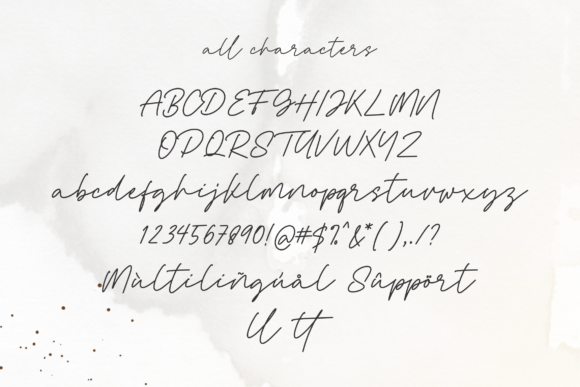 all characters
ABCDEFGHIJKLMN
OPQRSTUVWXYZ
abcdefghijklmnopqrstuvwxyz
1234567890!@#$%^&*(),./?
Mùltilíñgúål Sûppört
ll tt